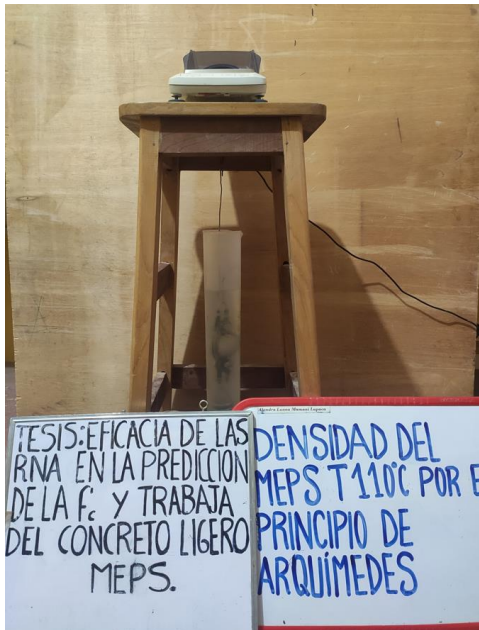 TESIS:EFICACIA DE LAS
RNA EN LA PREDICCION
DE LA f'c Y TRABAJA
DEL CONCRETO LIGERO
MEPS.
DENSIDAD DEL
MEPS T 110°C POR E
PRINCIPIO DE
ARQUÍMEDES